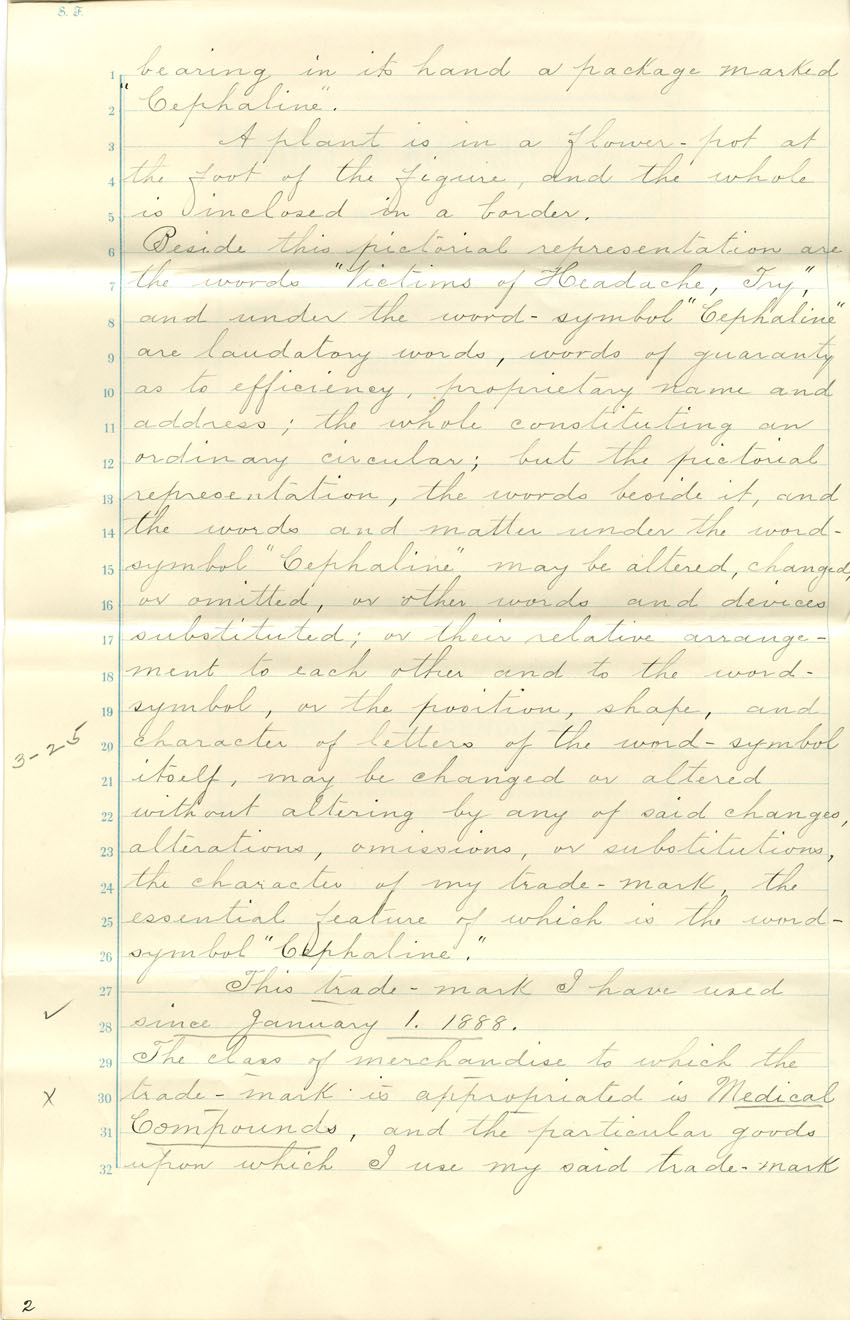 S. F.
1 bearing in its hand a package marked
2 "Cephaline".
3 A plant is in a flower-pot at
4 the foot of the figure, and the whole
5 is inclosed in a border.
6 Beside this pictorial representation are
7 the words "Victims of Headache, Try",
8 and under the word-symbol "Cephaline"
9 are laudatory words, words of guaranty
10 as to efficiency, proprietary name and
11 address; the whole constituting an
12 ordinary circular; but the pictorial
13 representation, the words beside it, and
14 the words and matter under the word-
15 symbol "Cephaline" may be altered, changed,
16 or omitted, or other words and devices
17 substituted; or their relative arrange-
18 ment to each other and to the word-
19 symbol, or the position, shape, and
3-25
20 character of letters of the word-symbol
21 itself, may be changed or altered
22 without altering by any of said changes,
23 alterations, omissions, or substitutions,
24 the character of my trade-mark, the
25 essential feature of which is the word-
26 symbol "Cephaline."
27 This trade-mark I have used
✓
28 since January 1. 1888.
29 The class of merchandise to which the
X
30 trade-mark is appropriated is Medical
31 Compounds, and the particular goods
32 upon which I use my said trade-mark
2